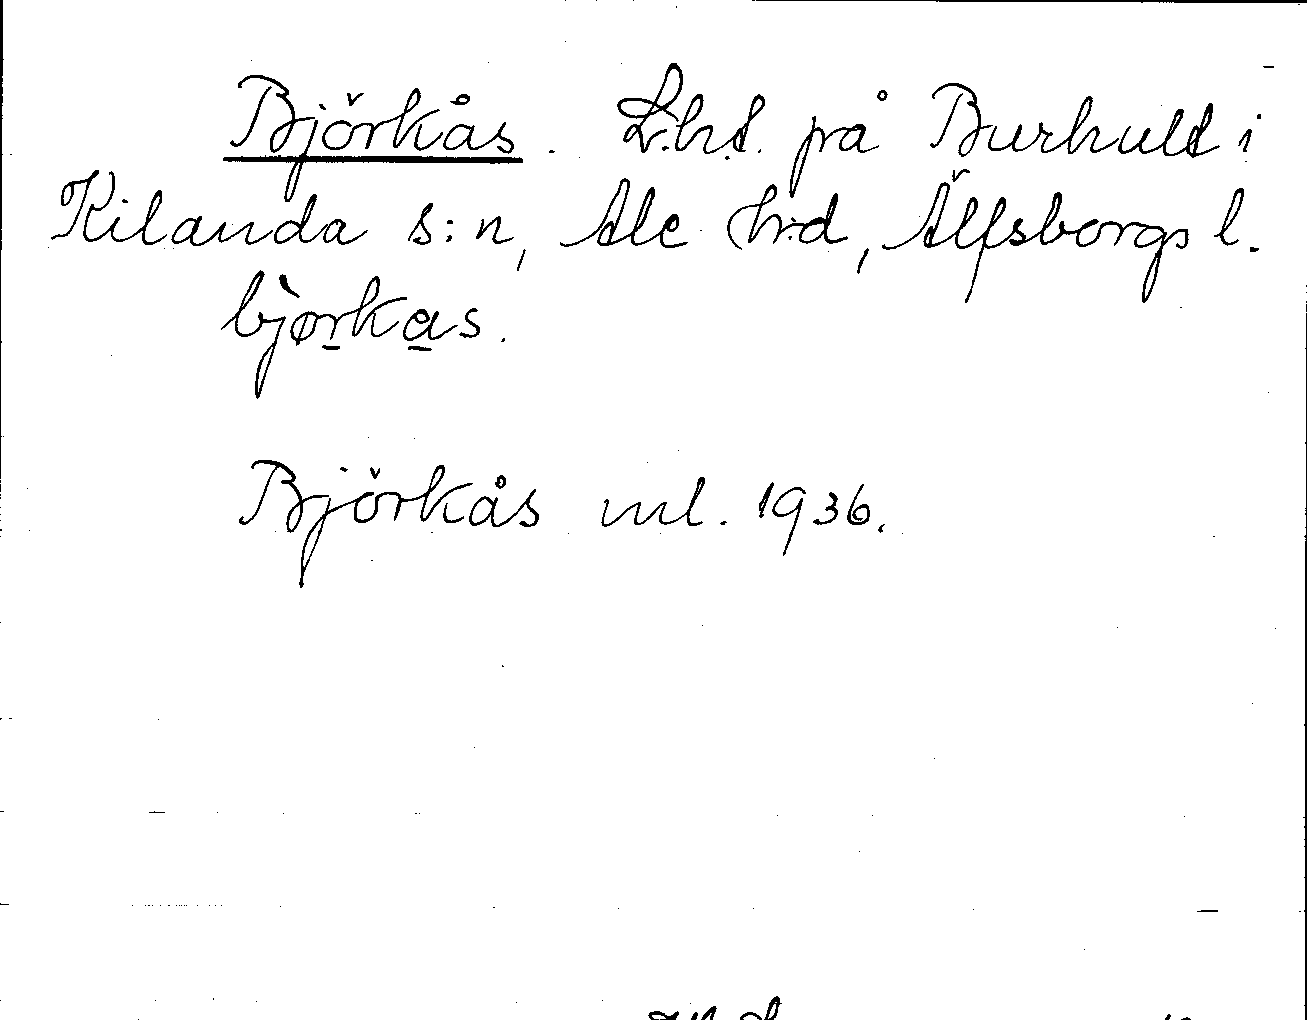 Björkås. L.h.t. på Burhult i
Kilanda s:n, Ale h:d, Älfsborgs l.
bjø̀rkas.
Björkås ml. 1936.